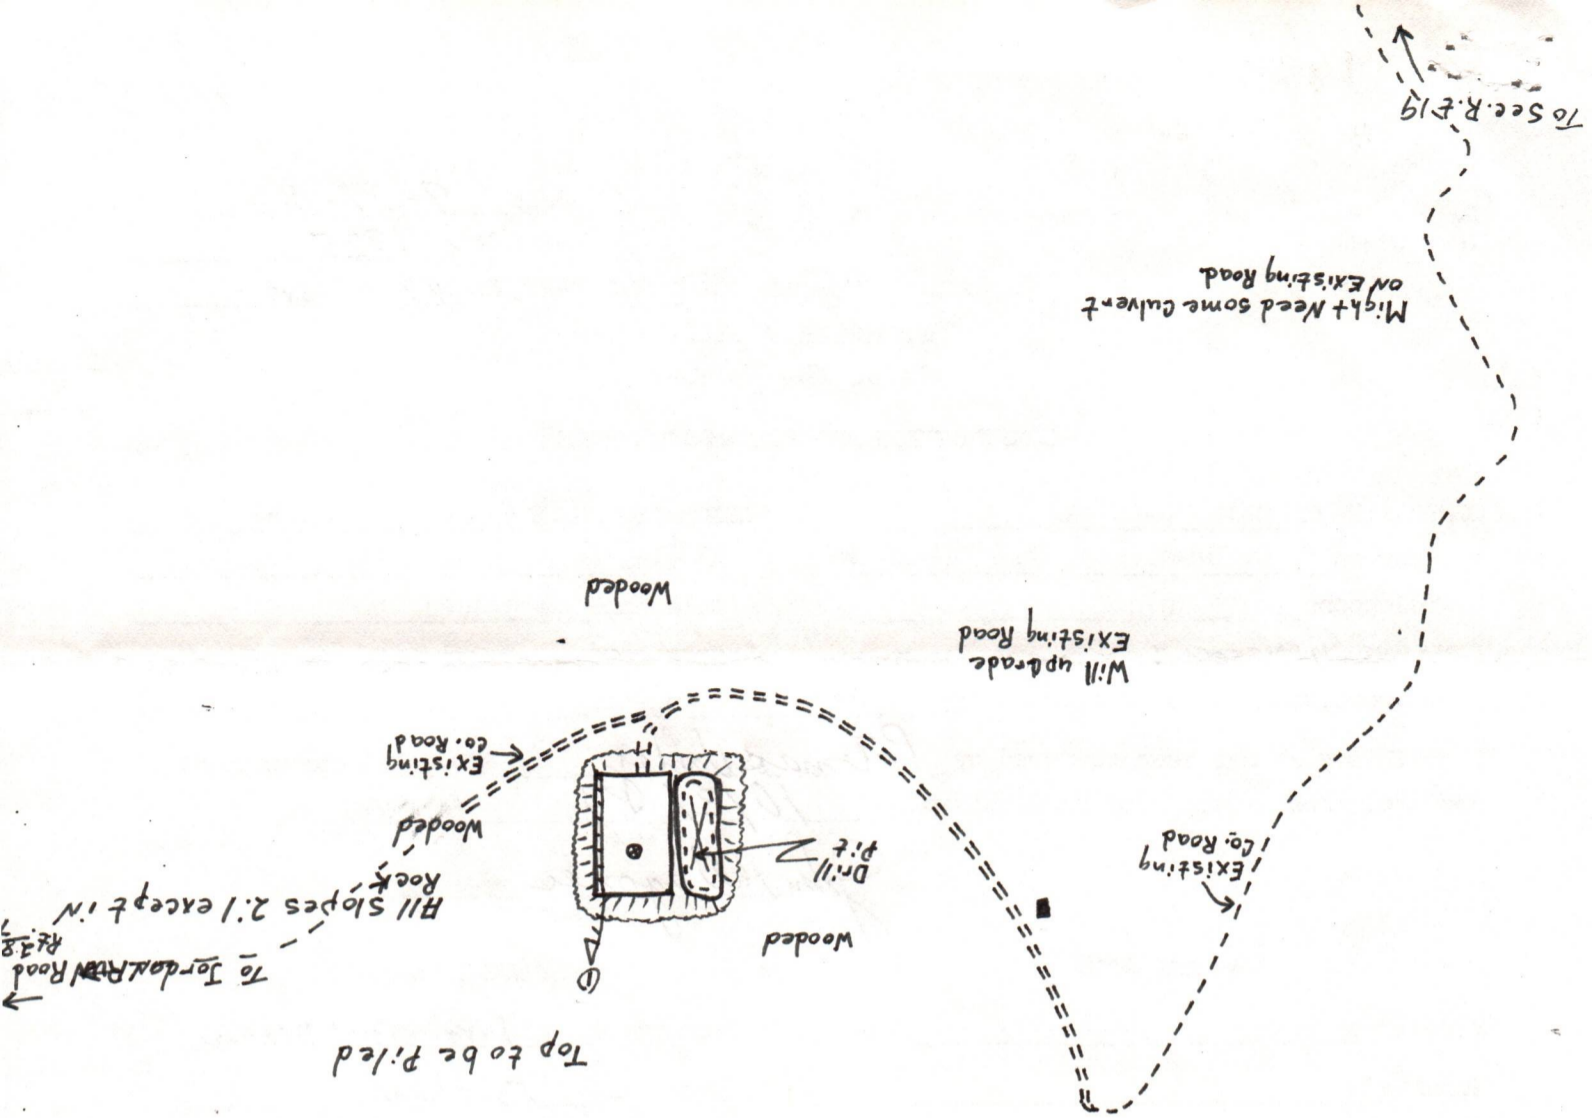 Top to be Piled
①
To Jordan Run Road
Rt. 28
7
All slopes 2:1 except in
Rock
Wooded
Wooded
Drill
Pit
Existing
Co. Road
Existing
Co. Road
Will upGrade
Existing Road
Wooded
Might Need some Culvert
on Existing Road
To Sec. R. E19